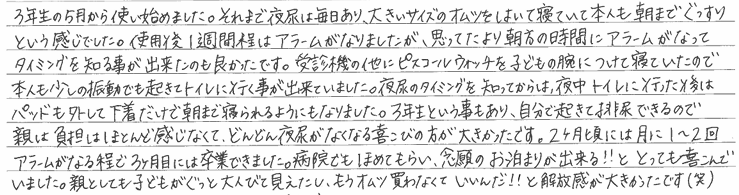 3年生の5月から使い始めました。それまで夜尿は毎日あり、大きいサイズのオムツをはいて寝ていて本人も朝までぐっすり
という感じでした。使用後1週間程はアラームがなりましたが、思ってたより朝方の時間にアラームがなって
タイミングを知る事が出来たのも良かったです。受診機の他にピスコールウォッチを子どもの腕につけて寝ていたので
本人も少しの振動でも起きてトイレに行く事が出来ていました。夜尿のタイミングを知ってからは、夜中トイレに行った後は
パッドも外して下着だけで朝まで寝られるようにもなりました。3年生という事もあり、自分で起きて排尿できるので
親は負担はほとんど感じなくて、どんどん夜尿がなくなる喜こびの方が大きかったです。2ヶ月頃には月に1～2回
アラームがなる程で3ヶ月目には卒業できました。病院でもほめてもらい、念願のお泊まりが出来る!!ととっても喜こんで
いました。親としても子どもがぐっと大人びて見えたし、もうオムツ買わなくていいんだ!!と解放感が大きかったです(笑)